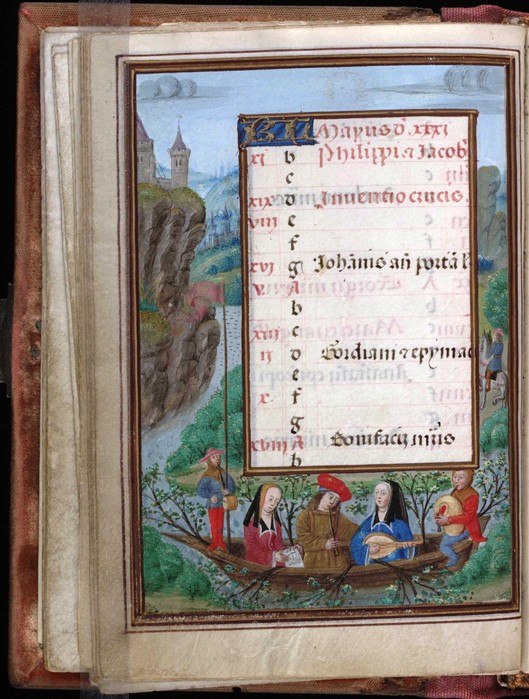 KL Mayus d. xxxi
xi b Philippi ⁊ Jacob
c
xix d Inventio crucis
viii e
f
xvi g Johānis an̄ portā l
v A
b
xiii c
ii d Gordiani ⁊ epymac
e
x f
g
xviii A Bonifacij
b